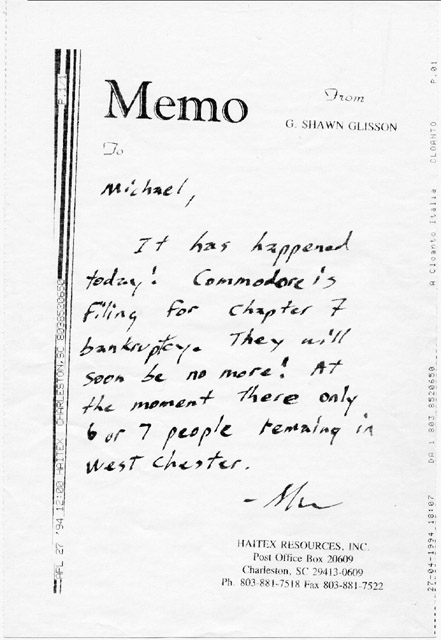 Memo
From
G. SHAWN GLISSON
To
Michael,
It has happened
today! Commodore is
Filing for chapter 7
bankruptcy. They will
soon be no more! At
the moment there only
6 or 7 people remaing in
West Chester.
HAITEX RESOURCES, INC.
Post Office Box 20609
Charleston, SC 29413-0609
Ph. 803-881-7518 Fax 803-881-7522
APL 27 '94 12:00 HAITEX CHARLESTON,SC 8038520650 P.1
27-04-1994 18:07 DA 1 803 8520650 A Cloanto Italia CLOANTO P.01